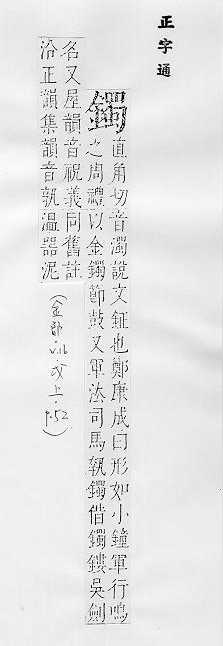 正字通
鐲
直角切音濁說文鉦也鄭康成曰形如小鐘軍行鳴
之周禮以金鐲節鼓又軍法司馬執鐲借鐲鏤吳劍
名又屋韻音祝義同舊註
沿正韻集韻音孰溫器泥
(金部.V.16.戌上.P.52)